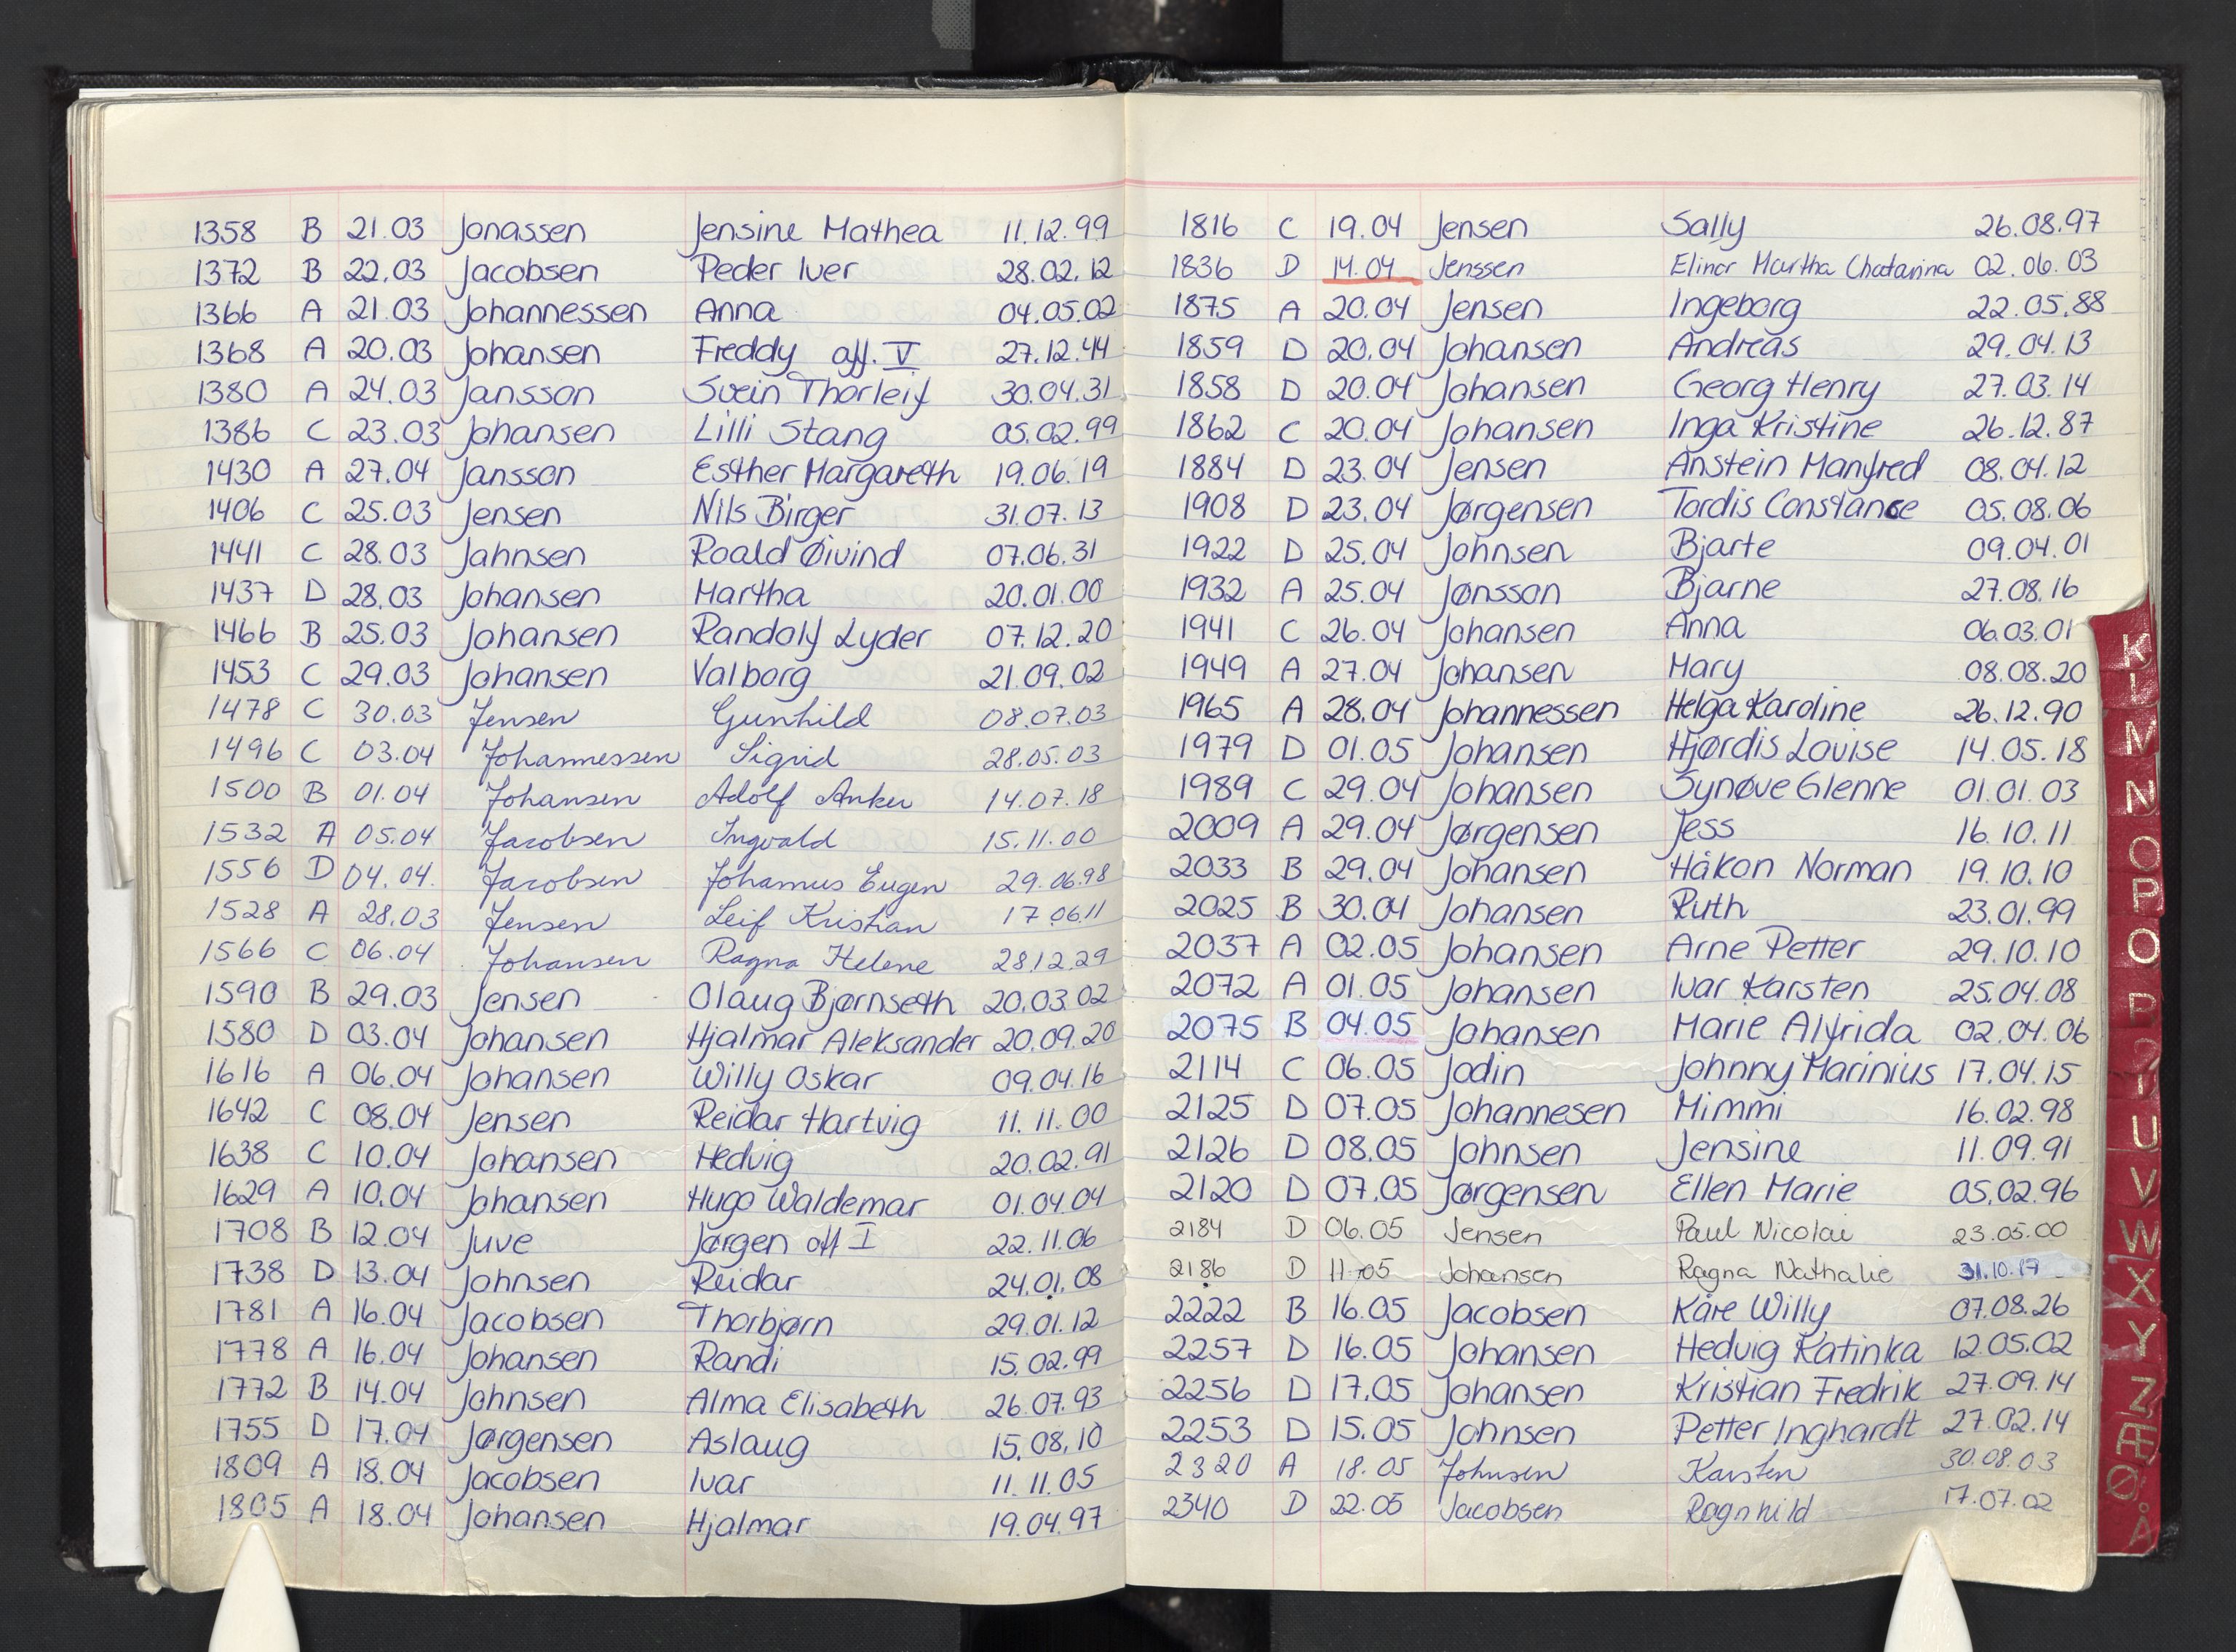 1358 B 21.03 Jonassen Jensine Mathea 11.12.99
1372 B 22.03 Jacobsen Peder Iver 28.02.12
1366 A 21.03 Johannessen Anna 04.05.02
1368 A 20.03 Johansen Freddy aff. V 27.12.44
1380 A 24.03 Jansson Svein Thorleif 30.04.31
1386 C 23.03 Johansen Lilli Stang 05.02.99
1430 A 27.04 Jansson Esther Margareth 19.06.19
1406 C 25.03 Jensen Nils Birger 31.07.13
1441 C 28.03 Jahnsen Roald Øivind 07.06.31
1437 D 28.03 Johansen Martha 20.01.00
1466 B 25.03 Johansen Randolf Lyder 07.12.20
1453 C 29.03 Johansen Valborg 21.09.02
1478 C 30.03 Jensen Gunhild 08.07.03
1496 C 03.04 Johannessen Sigrid 28.05.03
1500 B 01.04 Johansen Adolf Anker 14.07.18
1532 A 05.04 Jacobsen Ingvald 15.11.00
1556 D 04.04. Jacobsen Johannus Eugen 29.06.98
1528 A 28.03 Jensen Leif Kristian 17.06.11
1566 C 06.04 Johansen Ragna Helene 28.12.29
1590 B 29.03 Jensen Olaug Bjørnseth 20.03.02
1580 D 03.04 Johansen Hjalmar Aleksander 20.09.20
1616 A 06.04 Johansen Willy Oskar 09.04.16
1642 C 08.04 Jensen Reidar Hartvig 11.11.00
1638 C 10.04 Johansen Hedvig 20.02.91
1629 A 10.04 Johansen Hugo Waldemar 01.04.04
1708 B 12.04 Juve Jørgen aff I 22.11.06
1738 D 13.04 Johnsen Reidar 24.01.08
1781 A 16.04 Jacobsen Thorbjørn 29.01.12
1778 A 16.04 Johansen Randi 15.02.99
1772 B 14.04 Johnsen Alma Elisabeth 26.07.93
1755 D 17.04 Jørgensen Aslaug 15.08.10
1809 A 18.04 Jacobsen Ivar 11.11.05
1805 A 18.04 Johansen Hjalmar 19.04.97
1816 C 19.04 Jensen Sally 26.08.97
1836 D 14.04 Jenssen Elinor Martha Chatarina 02.06.03
1875 A 20.04 Jensen Ingeborg 22.05.88
1859 D 20.04 Johansen Andreas 29.04.13
1858 D 20.04 Johansen Georg Henry 27.03.14
1862 C 20.04 Johansen Inga Kristine 26.12.87
1884 D 23.04 Jensen Anstein Manfred 08.04.12
1908 D 23.04 Jørgensen Tordis Constance 05.08.06
1922 D 25.04 Johnsen Bjarte 09.04.01
1932 A 25.04 Jønsson Bjarne 27.08.16
1941 C 26.04 Johansen Anna 06.03.01
1949 A 27.04 Johansen Mary 08.08.20
1965 A 28.04 Johannessen Helga Karoline 26.12.90
1979 D 01.05 Johansen Hjørdis Louise 14.05.18
1989 C 29.04 Johansen Synøve Glenne 01.01.03
2009 A 29.04 Jørgensen Jess 16.10.11
2033 B 29.04 Johansen Håkon Norman 19.10.10
2025 B 30.04 Johansen Ruth 23.01.99
2037 A 02.05 Johansen Arne Petter 29.10.10
2072 A 01.05 Johansen Ivar Karsten 25.04.08
2075 B 04.05 Johansen Marie Alfrida 02.04.06
2114 C 06.05 Jodin Johnny Marinius 17.04.15
2125 D 07.05 Johannesen Mimmi 16.02.98
2126 D 08.05 Johnsen Jensine 11.09.91
2120 D 07.05 Jørgensen Ellen Marie 05.02.96
2184 D 06.05 Jensen Paul Nicolai 23.05.00
2186 D 11.05 Johansen Ragna Nathalie 31.10.17
2222 B 16.05 Jacobsen Kåre Willy 07.08.26
2257 D 16.05 Johansen Hedvig Katinka 12.05.02
2256 D 17.05 Johansen Kristian Fredrik 27.09.14
2253 D 15.05 Johnsen Petter Inghardt 27.02.14
2320 A 18.05 Johnsen Karsten 30.08.03
2340 D 22.05 Jacobsen Ragnhild 17.07.02
K
L
M
N
O
P
Q
U
V
W
X
Y
Z
Æ
Ø
Å